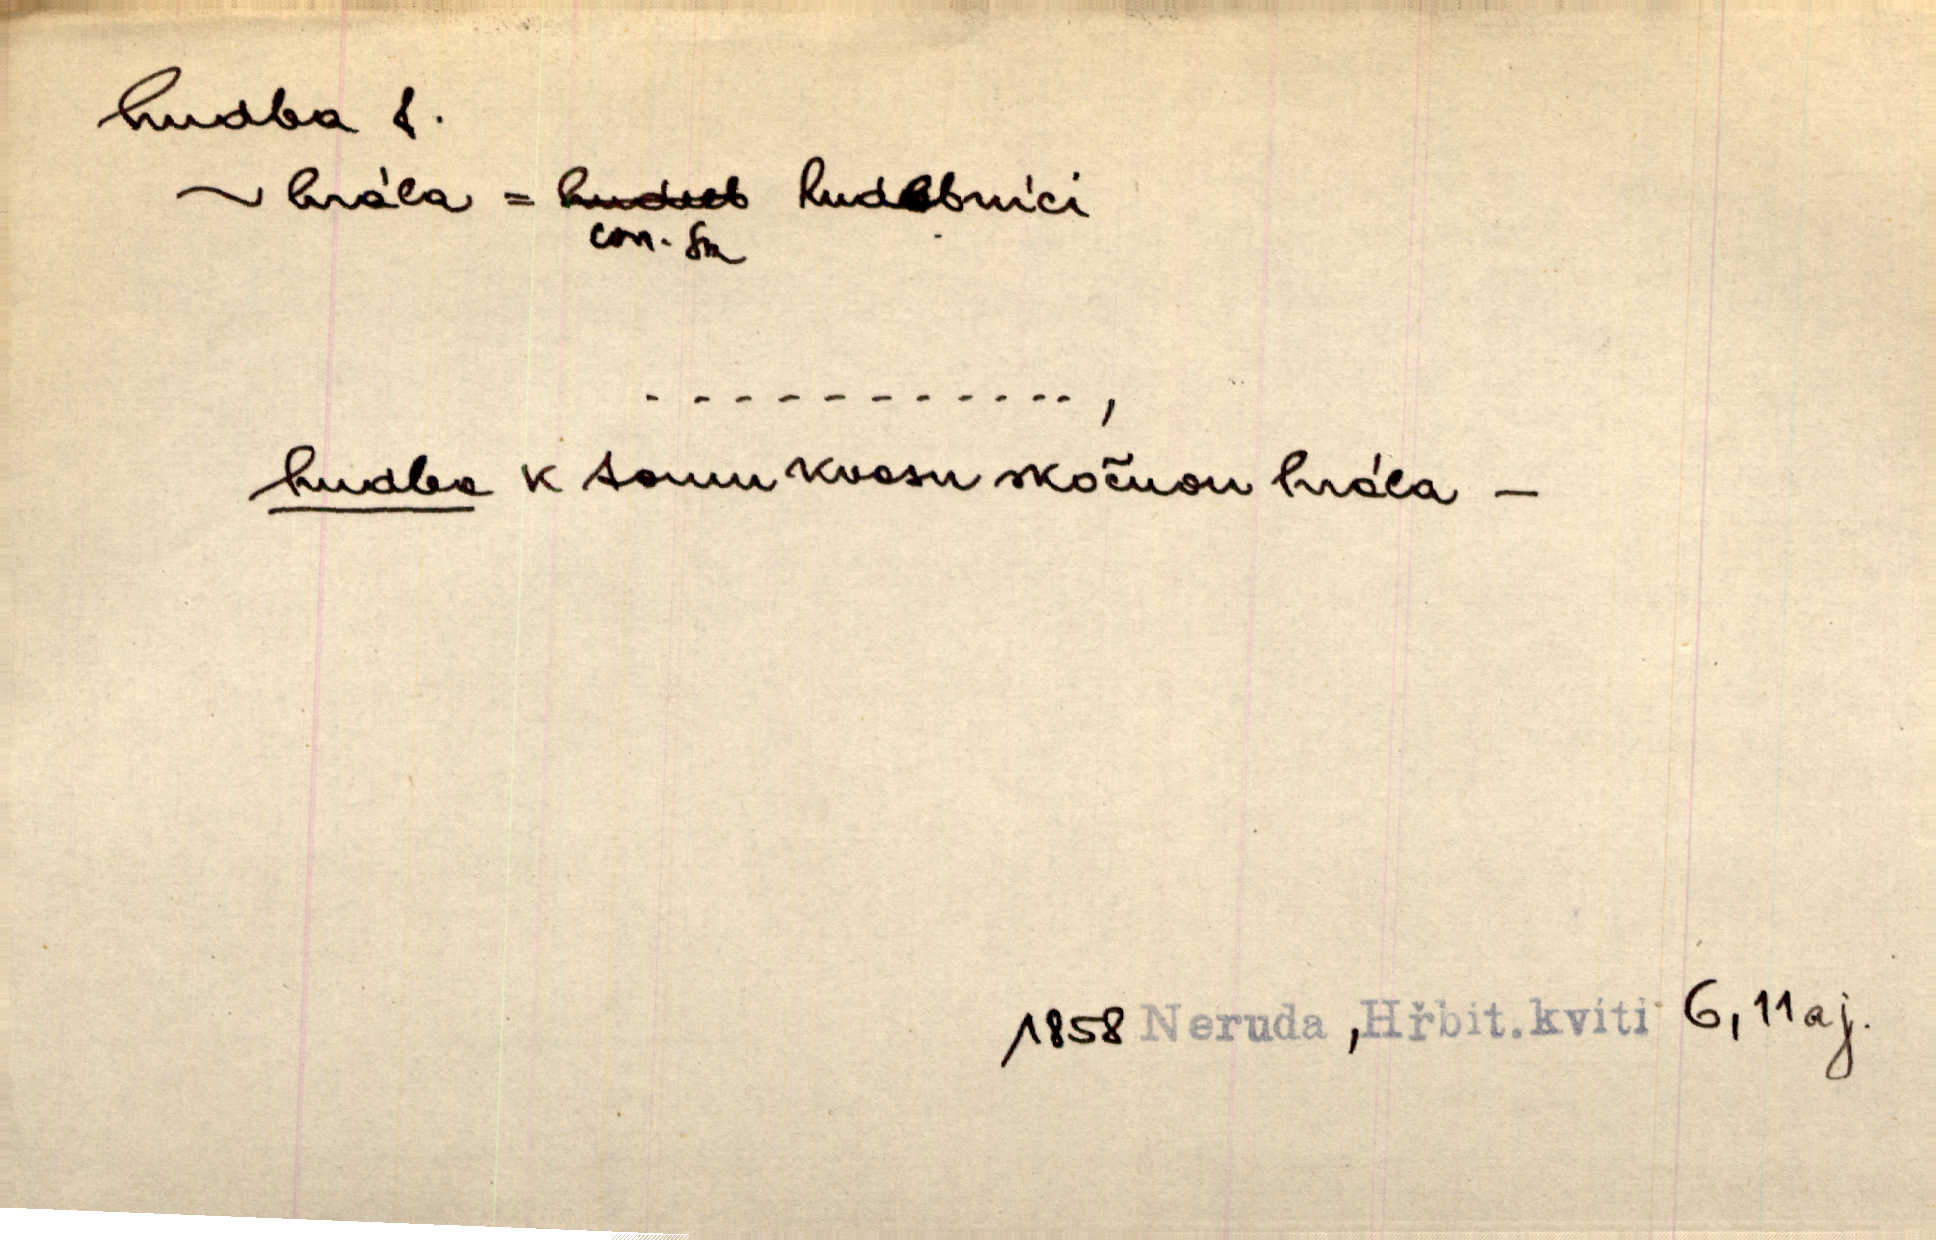 hudba f.
~ hrála = hudeb hudebníci
con. Sm
. - - - - - - - - - . . ,
hudba k tomu kvasu skočnou hrála –
1858 Neruda, Hřbit. kvítí 6, 11 aj.